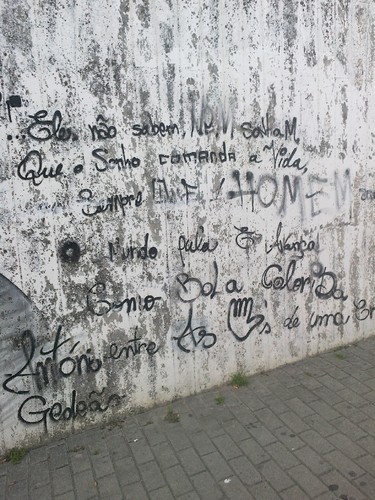 ...Eles não sabem, NEM sonham,
Que o Sonho comanda a Vida,
Sempre HOMEM
o Mundo pula E Avança
Como BoLa ColoriDa
entre As s de uma
António
Gedeão